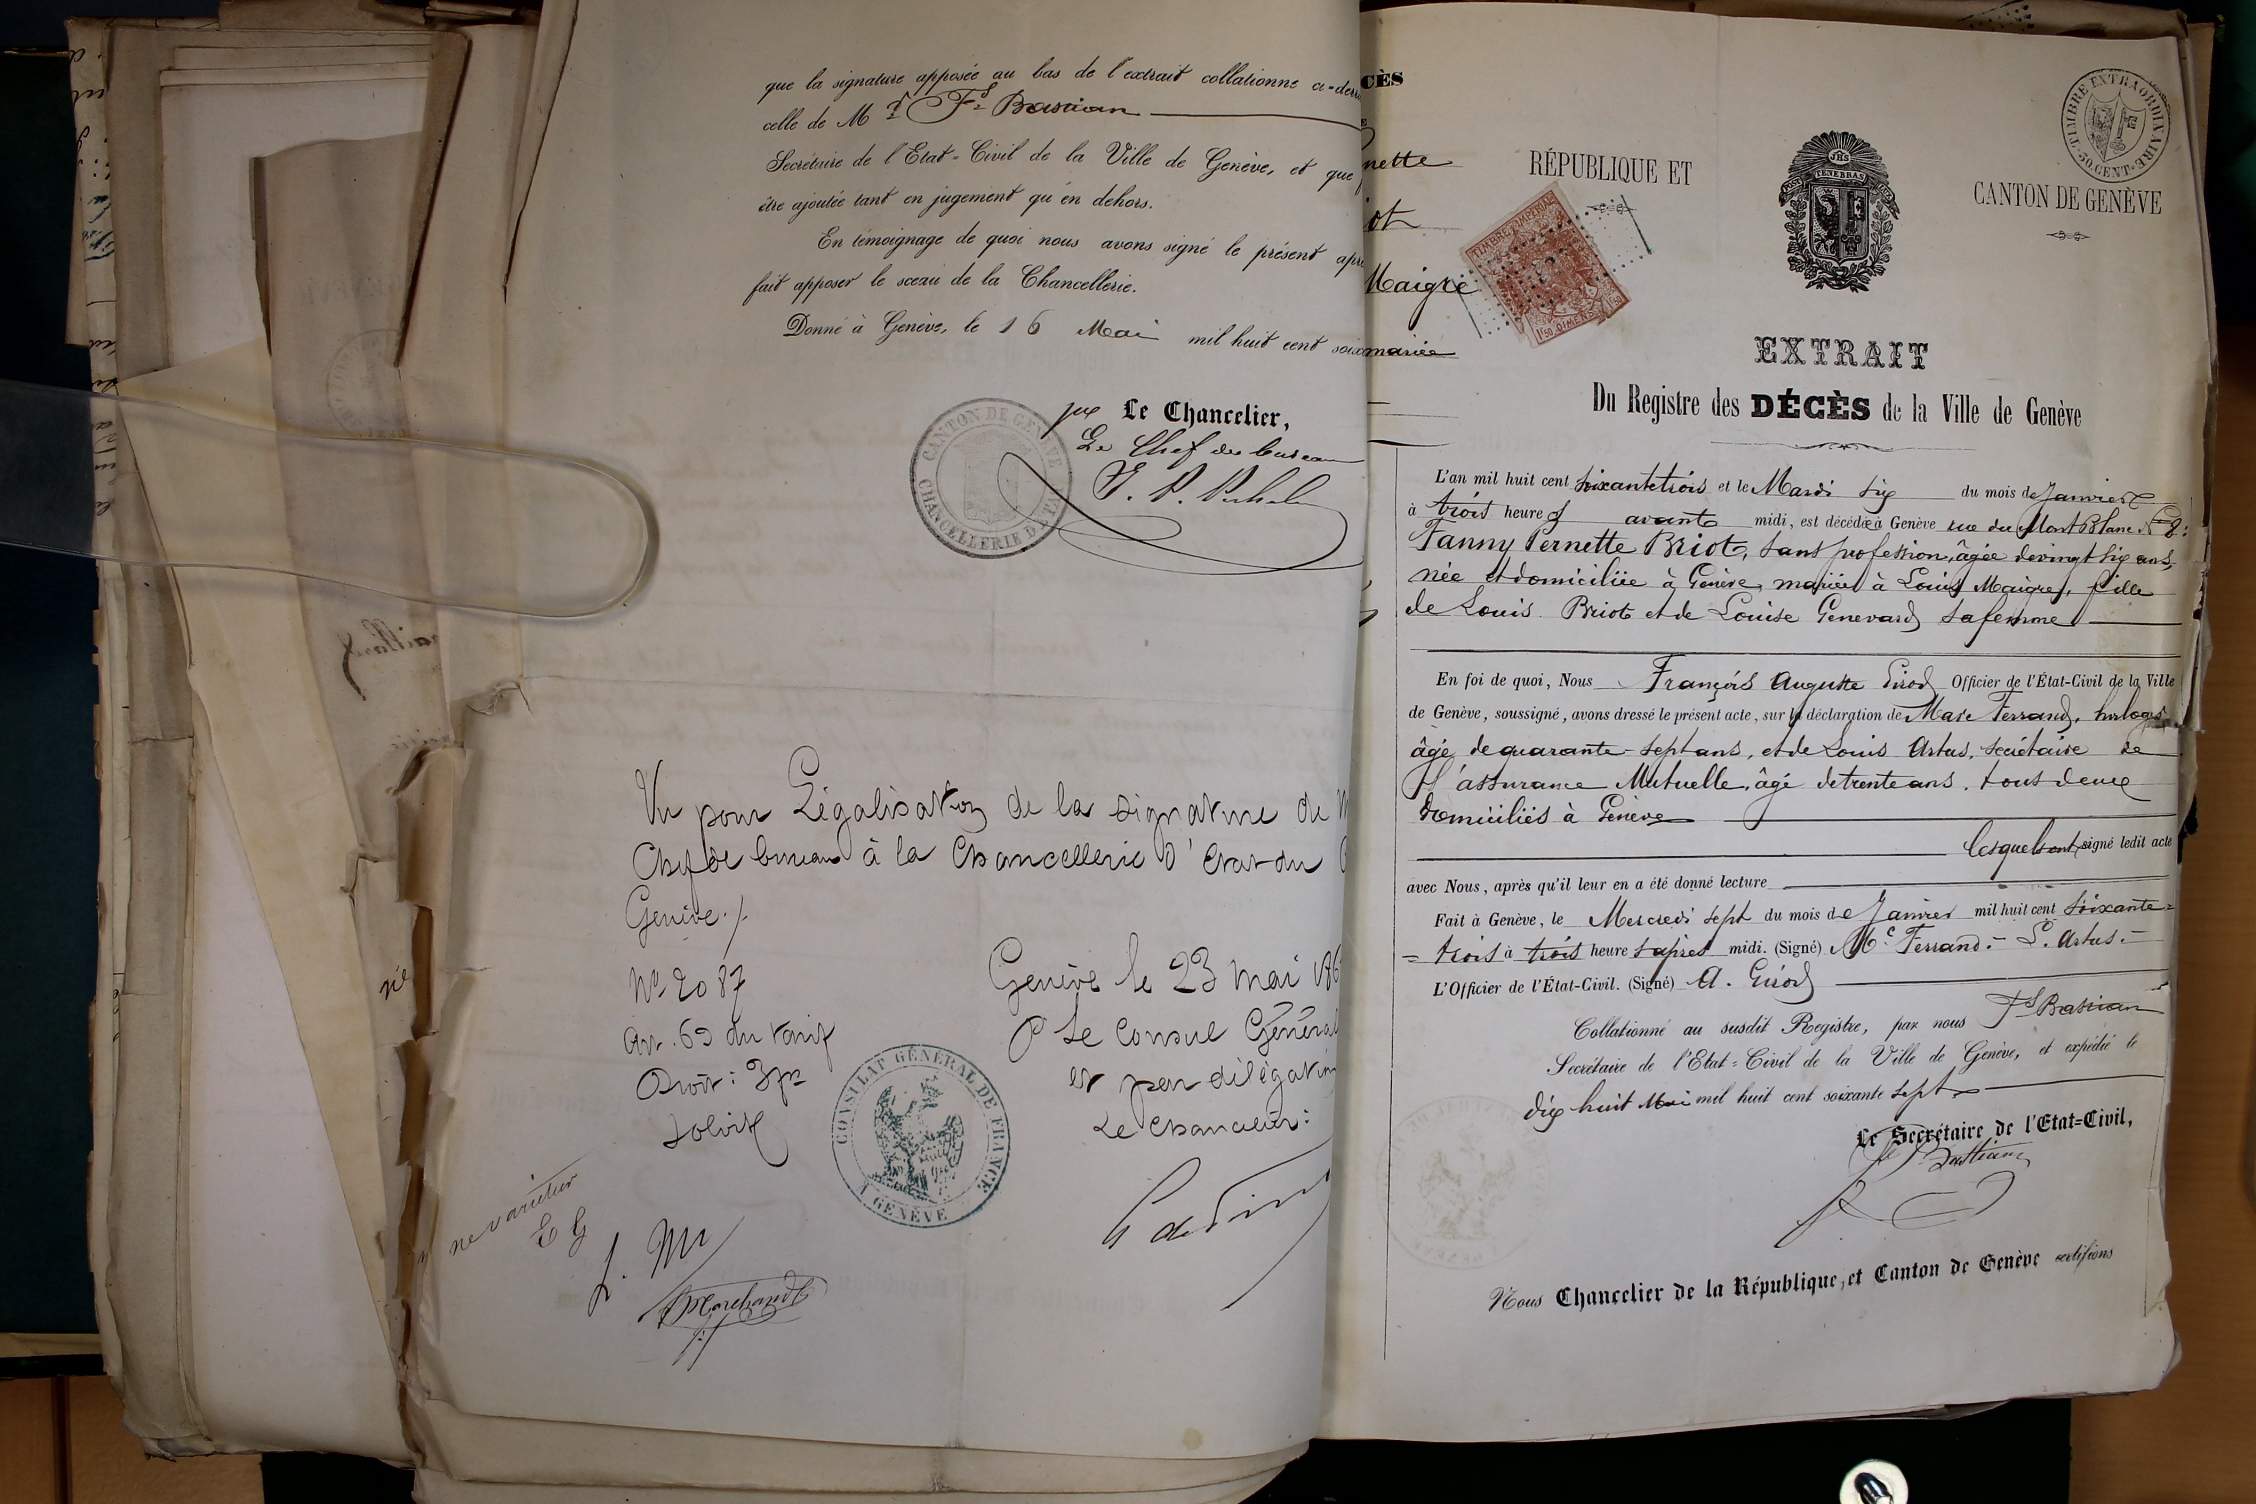 que la signature apposée au bas de l'extrait collationné ci-derr
celle de Mr Fs Bastian
Secrétaire de l'Etat-Civil de la Ville de Genève, et que
être ajoutée tant en jugement qu'en dehors.
En témoignage de quoi nous avons signé le présent apr
fait apposer le sceau de la Chancellerie.
Donné à Genève, le 16 Mai mil huit cent soix
CANTON DE GENÈVE
CHANCELLERIE D'ETAT
Le Chancelier,
Le Chef du bureau
Vu pour Légalisation de la signature de M
Chef de bureau à la Chancellerie d'Etat du
Genève
No 2087
Art. 69 du tarif
Droit: 3 frs
Genève le 23 mai 186
Le Consul Général
et par délégation
Le Chancelier:
CONSULAT GÉNÉRAL DE FRANCE
A GENÈVE
ne varietur
E G
L. M
CÈS
nette
iot
Maigre
mariée
TIMBRE EXTRAORDINAIRE
50. CENT.
RÉPUBLIQUE ET
CANTON DE GENÈVE
JHS
POST TENEBRAS
TIMBRE IMPERIAL
1f50 DIMENS
EXTRAIT
Du Registre des DÉCÈS de la Ville de Genève
L'an mil huit cent soixante trois et le Mardi six du mois de Janvier
à trois heures avant midi, est décédée à Genève rue du Mont Blanc No 8:
Fanny Pernette Briot, sans profession, âgée de vingt six ans,
née et domiciliée à Genève, mariée à Louis Maigre, fille
de Louis Briot et de Louise Genevard sa femme
En foi de quoi, Nous François Auguste Girod Officier de l'État-Civil de la Ville
de Genève, soussigné, avons dressé le présent acte, sur la déclaration de Marc Ferrand, horloger
âgé de quarante-sept ans, et de Louis Artus, secrétaire de
l'assurance Mutuelle, âgé de trente ans, tous deux
domiciliés à Genève
lesquels ont signé ledit acte
avec Nous, après qu'il leur en a été donné lecture
Fait à Genève, le Mercredi sept du mois de Janvier mil huit cent soixante=
=trois à trois heures après midi. (Signé) Mc Ferrand.- L. Artus.-
L'Officier de l'État-Civil. (Signé) A. Girod
Collationné au susdit Registre, par nous Fs Bastian
Secrétaire de l'Etat-Civil de la Ville de Genève, et expédié le
dix huit Mai mil huit cent soixante sept
Le Secrétaire de l'Etat-Civil,
Bastian
Nous Chancelier de la République et Canton de Genève certifions